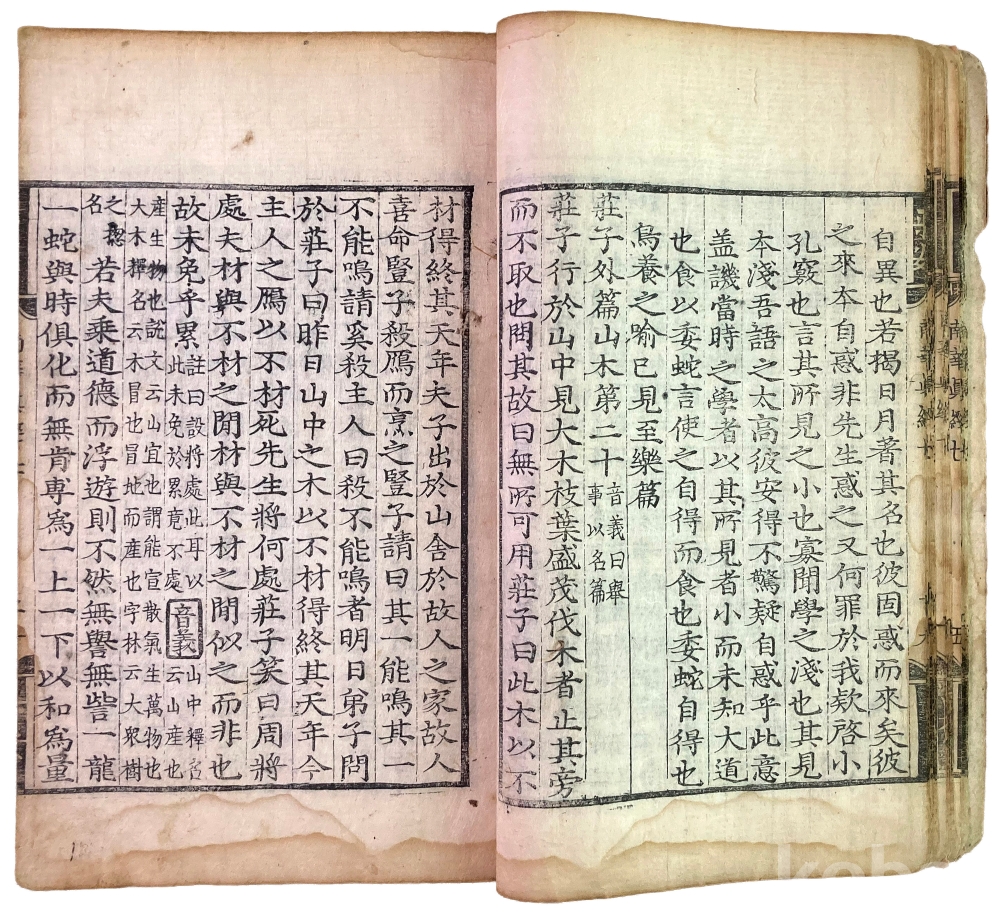 自異也若揭日月著其名也彼固惑而來矣彼
之來本自惑非先生惑之又何罪於我歟啓小
孔竅也言其所見之小也寡聞學之淺也其見
本淺吾語之太高彼安得不驚疑自惑乎此意
盖譏當時之學者以其所見者小而未知大道
也食以委蛇言使之自得而食也委蛇自得也
鳥養之喻已見至樂篇
莊子外篇山木第二十音義曰舉
事以名篇
莊子行於山中見大木枝葉盛茂伐木者止其旁
而不取也問其故曰無所可用莊子曰此木以不
材得終其天年夫子出於山舍於故人之家故人
喜命豎子殺鴈而烹之豎子請曰其一能鳴其一
不能鳴請奚殺主人曰殺不能鳴者明日弟子問
於莊子曰昨日山中之木以不材得終其天年今
主人之鴈以不材死先生將何處莊子笑曰周將
處夫材與不材之間材與不材之間似之而非也
故未免乎累註曰設將處此耳以
此未免於累竟不處音義山中釋名
云山産也
産生物也說文云山宜也謂能宣散氣生萬物也
大木釋名云木冒也冒地而産也字林云大衆樹
之揔
名若夫乘道德而浮遊則不然無譽無訾一龍
一蛇與時俱化而無肯專爲一上一下以和爲量
南華眞經七